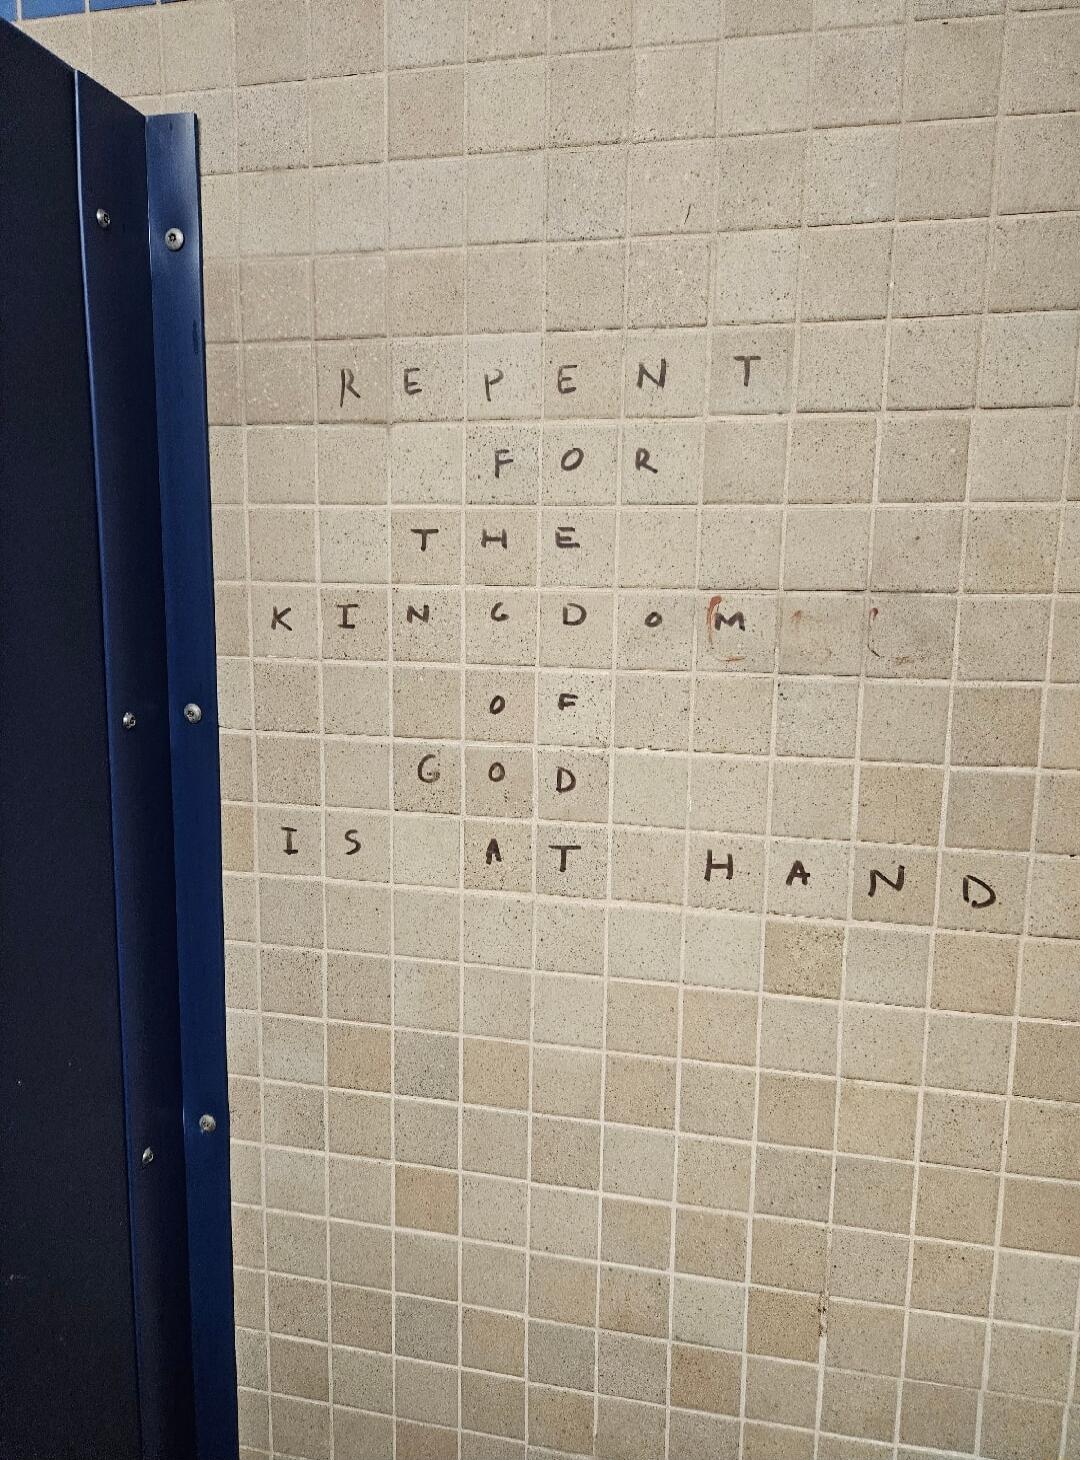 REPENT
FOR
THE
KINGDOM
OF
GOD
IS AT HAND